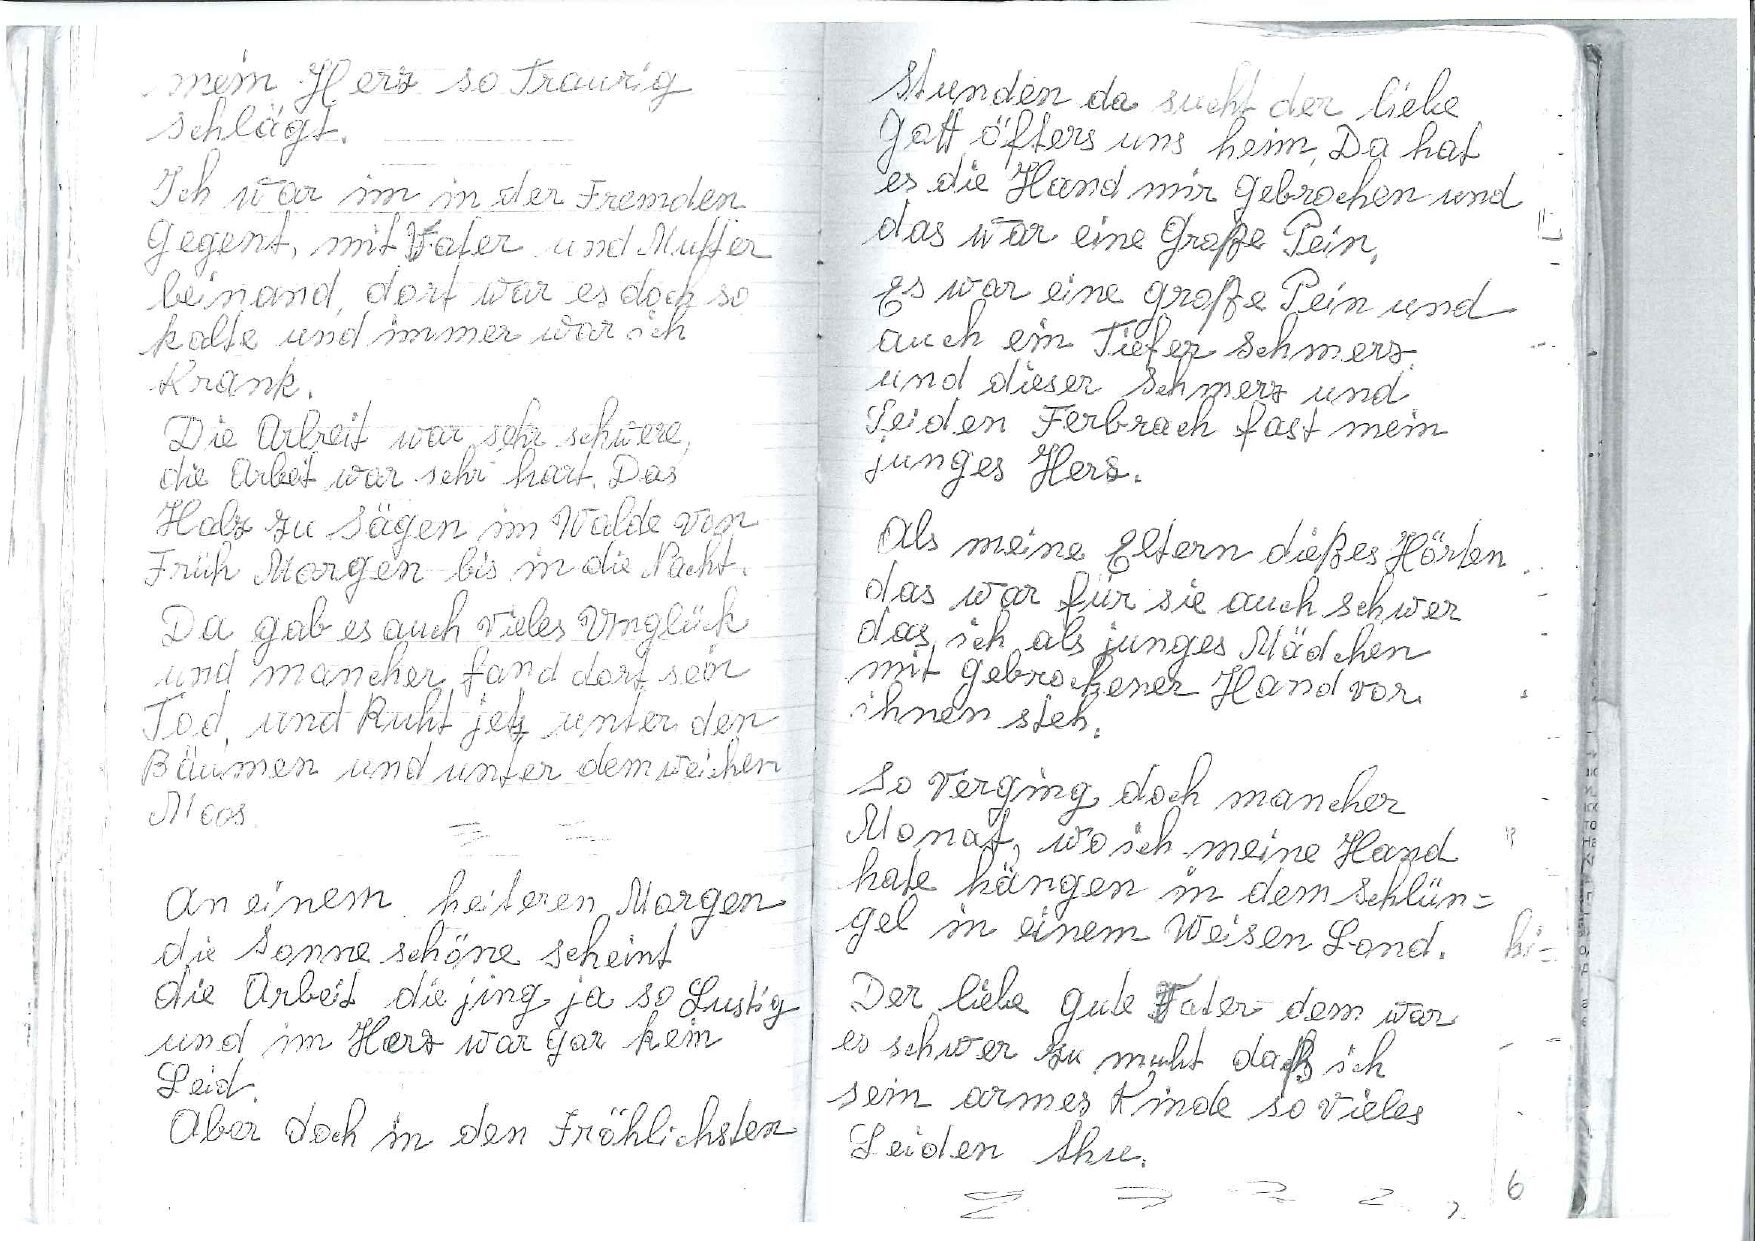 mein Herz so Traurig
schlägt.
Ich war im in der Fremden
Gegent, mit Vater und Mutter
beinand, dort war es doch so
kalte und immer war ich
Krank.
Die Arbeit war sehr schwere,
die Arbeit war sehr hart. Das
Holz zu sägen im Walde von
Früh Morgen bis in die Nacht.
Da gab es auch vieles Unglück
und mancher fand dort
Tod, und Ruht jetz unter den
Bäumen und unter dem weichen
Moos.
An einem heiteren Morgen
die Sonne schöne scheint
die Arbeit die jing ja so Lustig
und im Herz war gar kein
Leid.
Aber doch in den Fröhlichsten
stunden da sucht der liebe
Gott öfters uns heim, Da hat
es die Hand mir gebrochen und
das war eine Große Pein,
Es war eine große Pein und
auch ein Tiefer schmerz,
und dieser Schmerz und
Leiden Ferbrach fast mein
junges Herz.
Als meine Eltern dießes Hörten
das war für sie auch schwer
das ich als junges Mädchen
mit gebrochener Hand vor
ihnen steh.
So verging doch mancher
Monat, wo ich meine Hand
hate hängen in dem Schlün=
gel in einem Weisen Land.
Der liebe gute Vater dem war
es schwer zu muht daß ich
sein armes Kinde so vieles
Leiden thu.
6